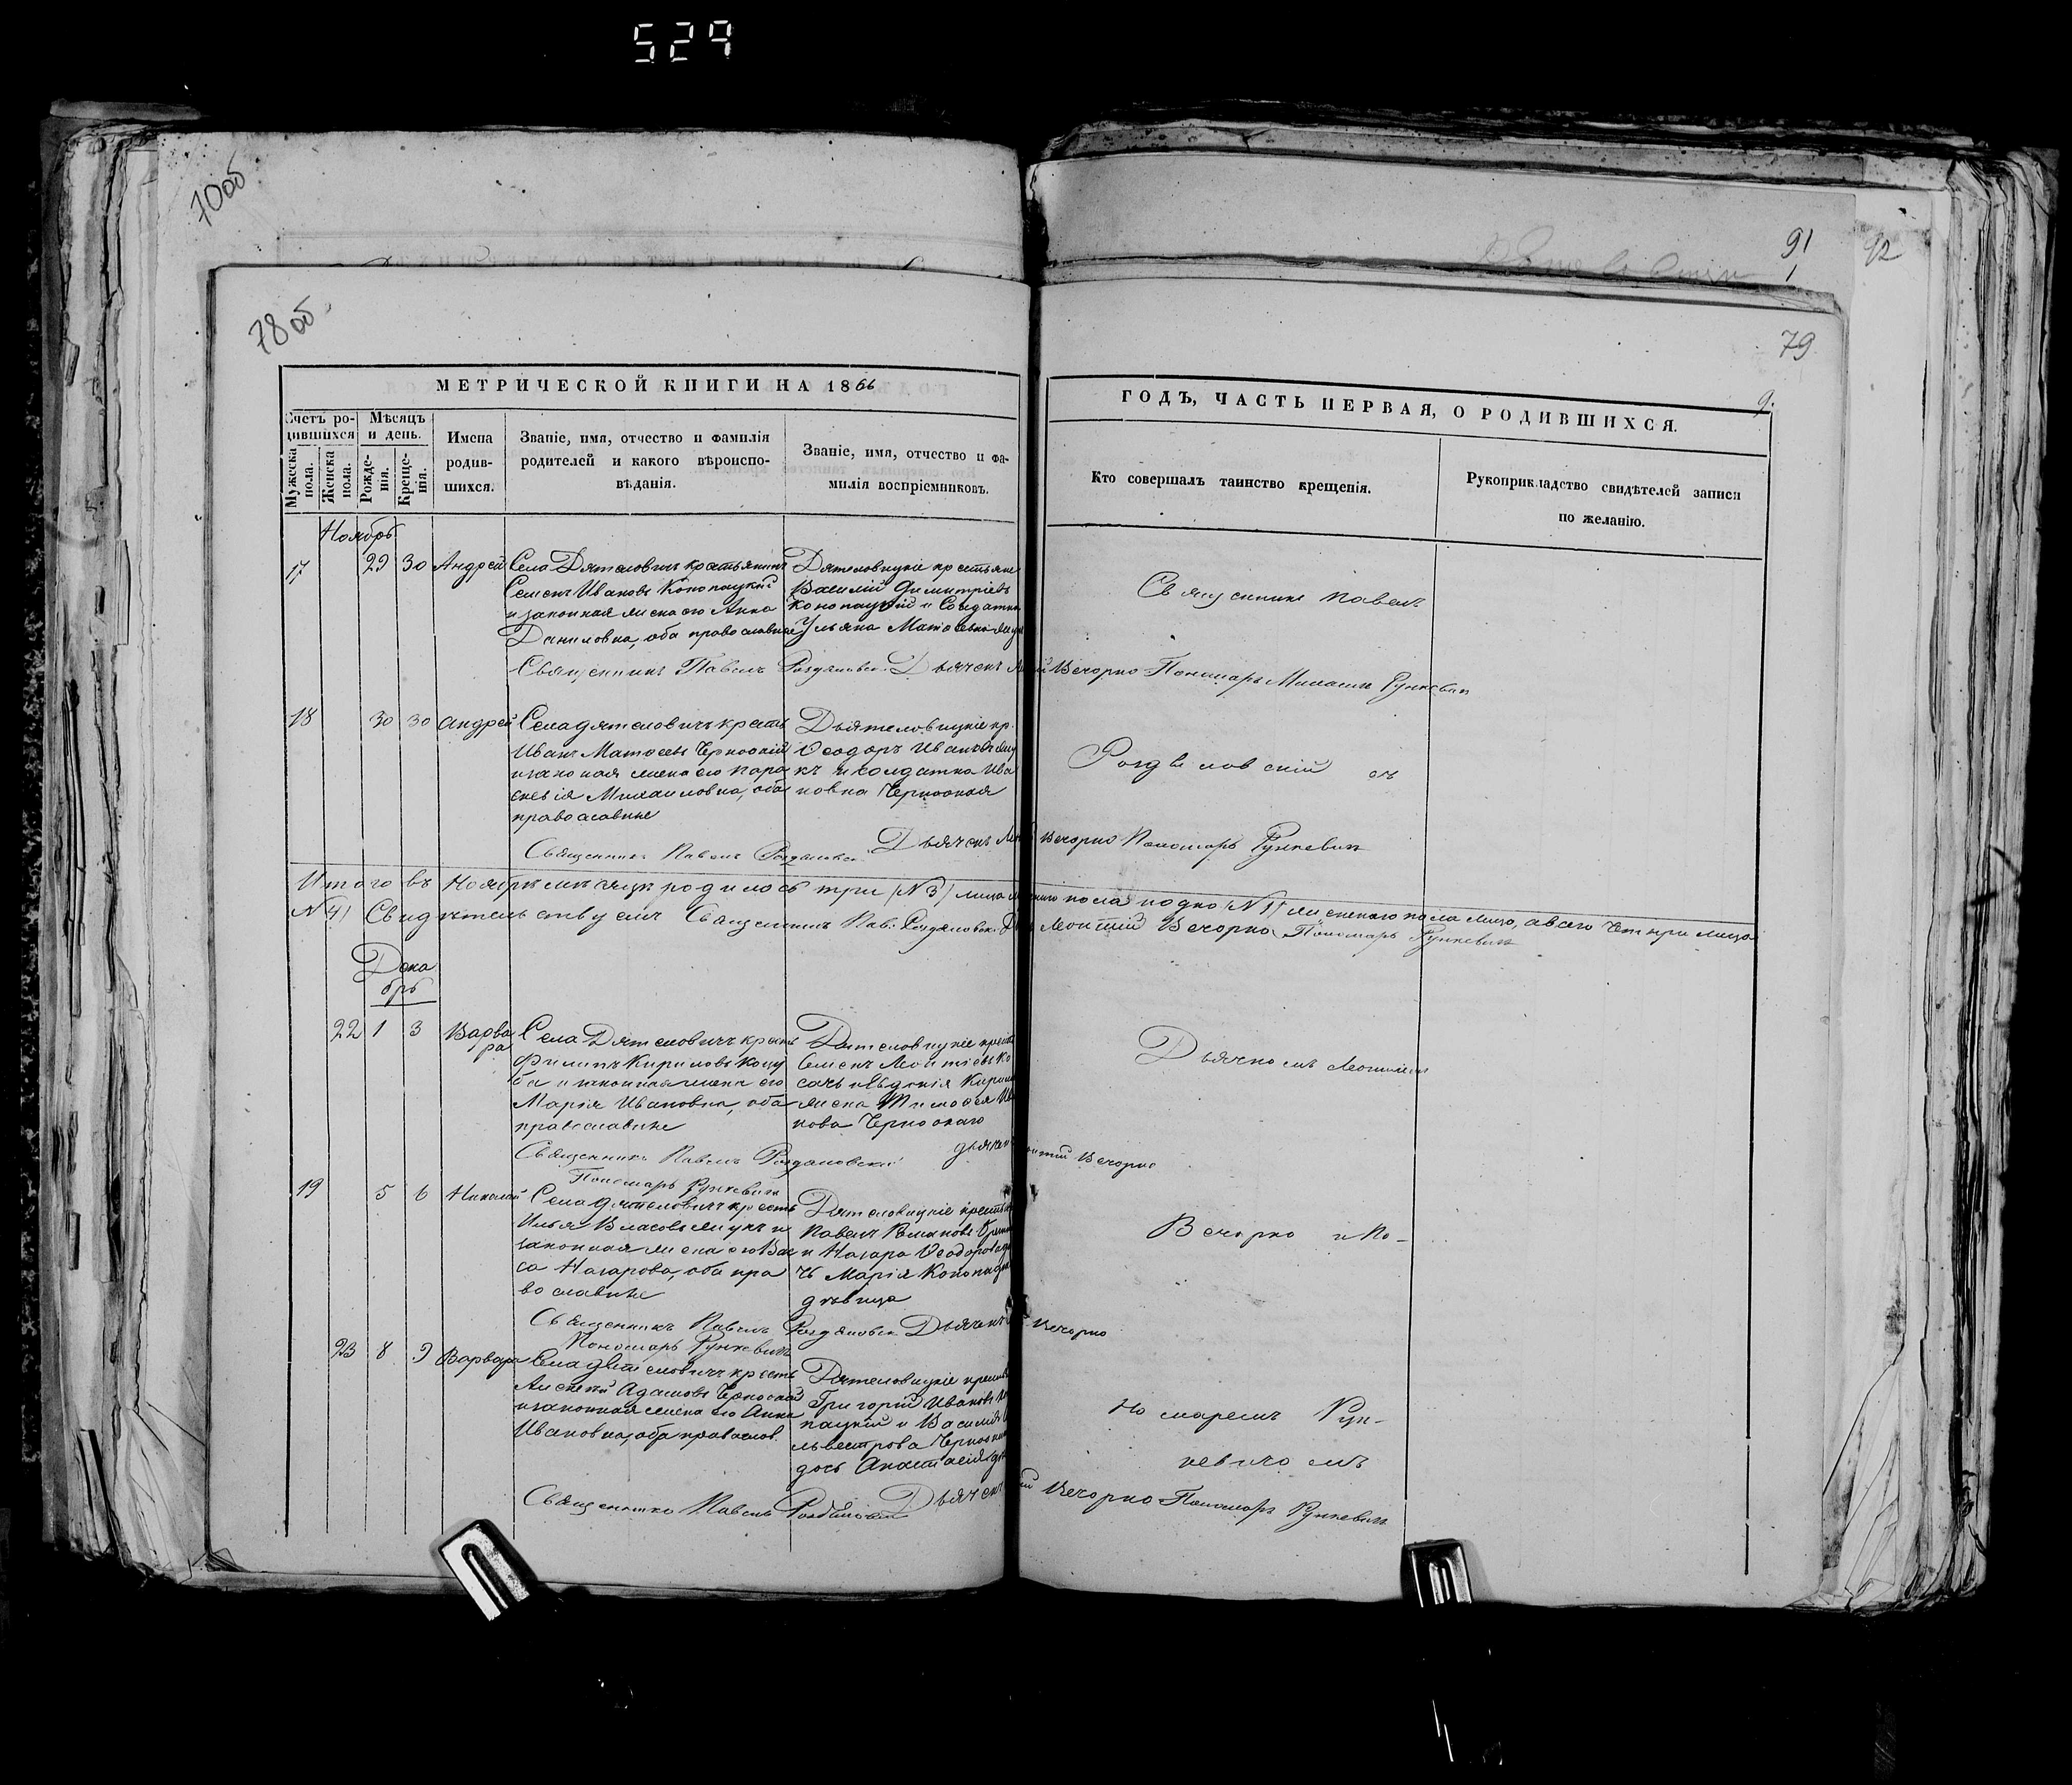 529
70об
78об
91
92
79
9.
МЕТРИЧЕСКОЙ КНИГИ НА 1866
ГОДЪ, ЧАСТЬ ПЕРВАЯ, О РОДИВШИХСЯ.
Счетъ ро-
дившихся
Мужеска
пола.
Женска
пола.
Мѣсяцъ
и день.
Рожде-
нія.
Креще-
нія.
Имена
родив-
шихся.
Званіе, имя, отчество и фамилія
родителей и какого вѣроиспо-
вѣданія.
Званіе, имя, отчество и фа-
милія воспріемниковъ.
Кто совершалъ таинство крещенія.
Рукоприкладство свидѣтелей записи
по желанію.
Ноябрь
17 29 30 Андрей
Села Дятеловичъ крестьянинъ
Семенъ Ивановъ Конопацкій
и законная жена его Анна
Даниловна, оба православные
Дятеловицкіе крестьяне
Василій Димитріевъ
Конопацкій и Солдатка
Ульяна Матѳеевна
Священникъ Павелъ
Священникъ Павелъ Дьячекъ Вечорко Пономарь Михаилъ Рункевичъ
18 30 30 Андрей
Села Дятеловичъ крестъ
Иванъ Матѳеевъ Черноокій
и законная жена его Пара
скевія Михаиловна, оба
православные
Дятеловицкіе кр.
Ѳеодоръ Ивановъ
и солдатка Ива
новна Черноокая
съ
Священникъ Павелъ Дьячекъ Вечорко Пономарь Рункевичъ
Итого въ Ноябрѣ мѣсяцѣ родилось три (N 3) лица пола и одно (N 1) женскаго пола лице, а всего четыре лица
N 4) Свидѣтельствуемъ Священникъ Пав. Леонтій Вечорко Пономарь Рункевичъ
Дека
брь
22 1 3 Варва
ра
Села Дятеловичъ крест
Филиппъ Кириловъ
и законная жена его
Марія Ивановна, оба
православные
Дятеловицкіе крест
Семенъ Леонтіевъ Ко
жена Тимоѳея Ива
нова Черноокаго
Дьячкомъ Леонтіемъ
Священникъ Павелъ Дьячекъ Вечорко
Пономарь Рункевичъ
19 5 6 Николай
Села Дятеловичъ крестъ
Илья Власовъ и
законная жена его Вас
са Назарова, оба пра
вославные
Дятеловицкіе крестья
Павелъ Романовъ
и Назара Ѳеодорова
Марія Конопац
дѣвица
Вечорко и По-
Священникъ Павелъ Дьячекъ Вечорко
Пономарь Рункевичъ
23 8 9 Варвара
Села Дятеловичъ крестъ
Алексѣй Адамовъ Черноокій
и законная жена его Анна
Ивановна, оба православ.
Дятеловицкіе крестья
Григорій Ивановъ
пацкій и Василія
львестрова Черноок
дочь Анастасія
номаремъ Рун-
кевичемъ
Священникъ Павелъ Дьячекъ Вечорко Пономарь Рункевичъ